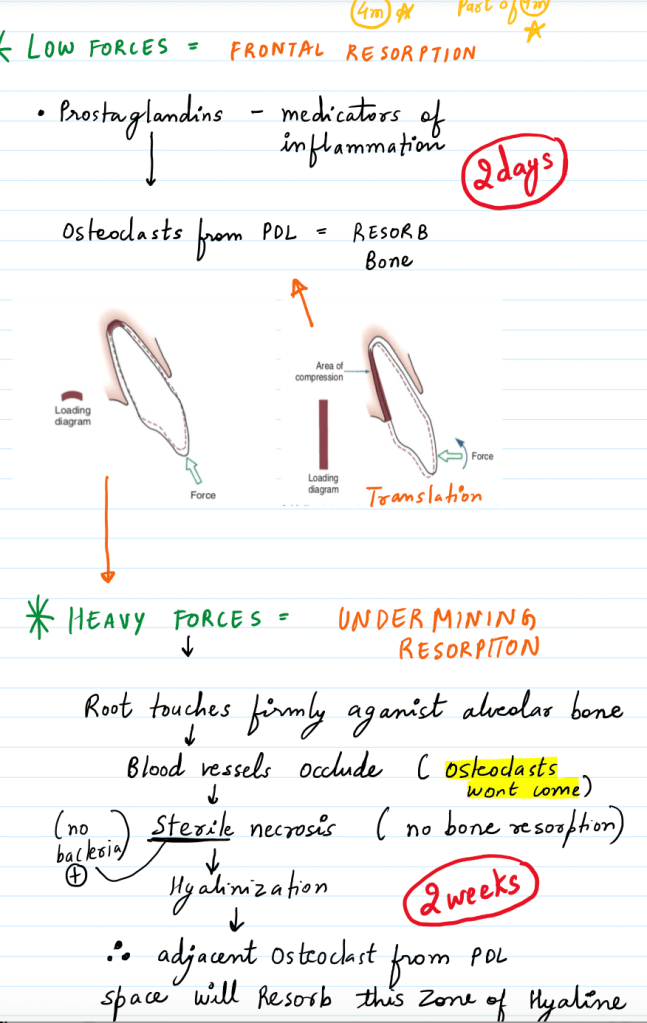 (4m) Part of (4m)
LOW FORCES = FRONTAL RESORPTION
• Prostaglandins - medicators of
inflammation
2 days
Osteoclasts from PDL = RESORB
Bone
Area of
compression
Loading
diagram
Force
Force
Loading
diagram
Translation
* HEAVY FORCES = UNDERMINING
RESORPITON
Root touches firmly aganist alveolar bone
Blood vessels occlude ( osteoclasts
wont come)
(no
bacteria) Sterile necrosis ( no bone resorption)
Hyalinization
2 weeks
∴ adjacent Osteoclast from PDL
space will Resorb this zone of Hyaline